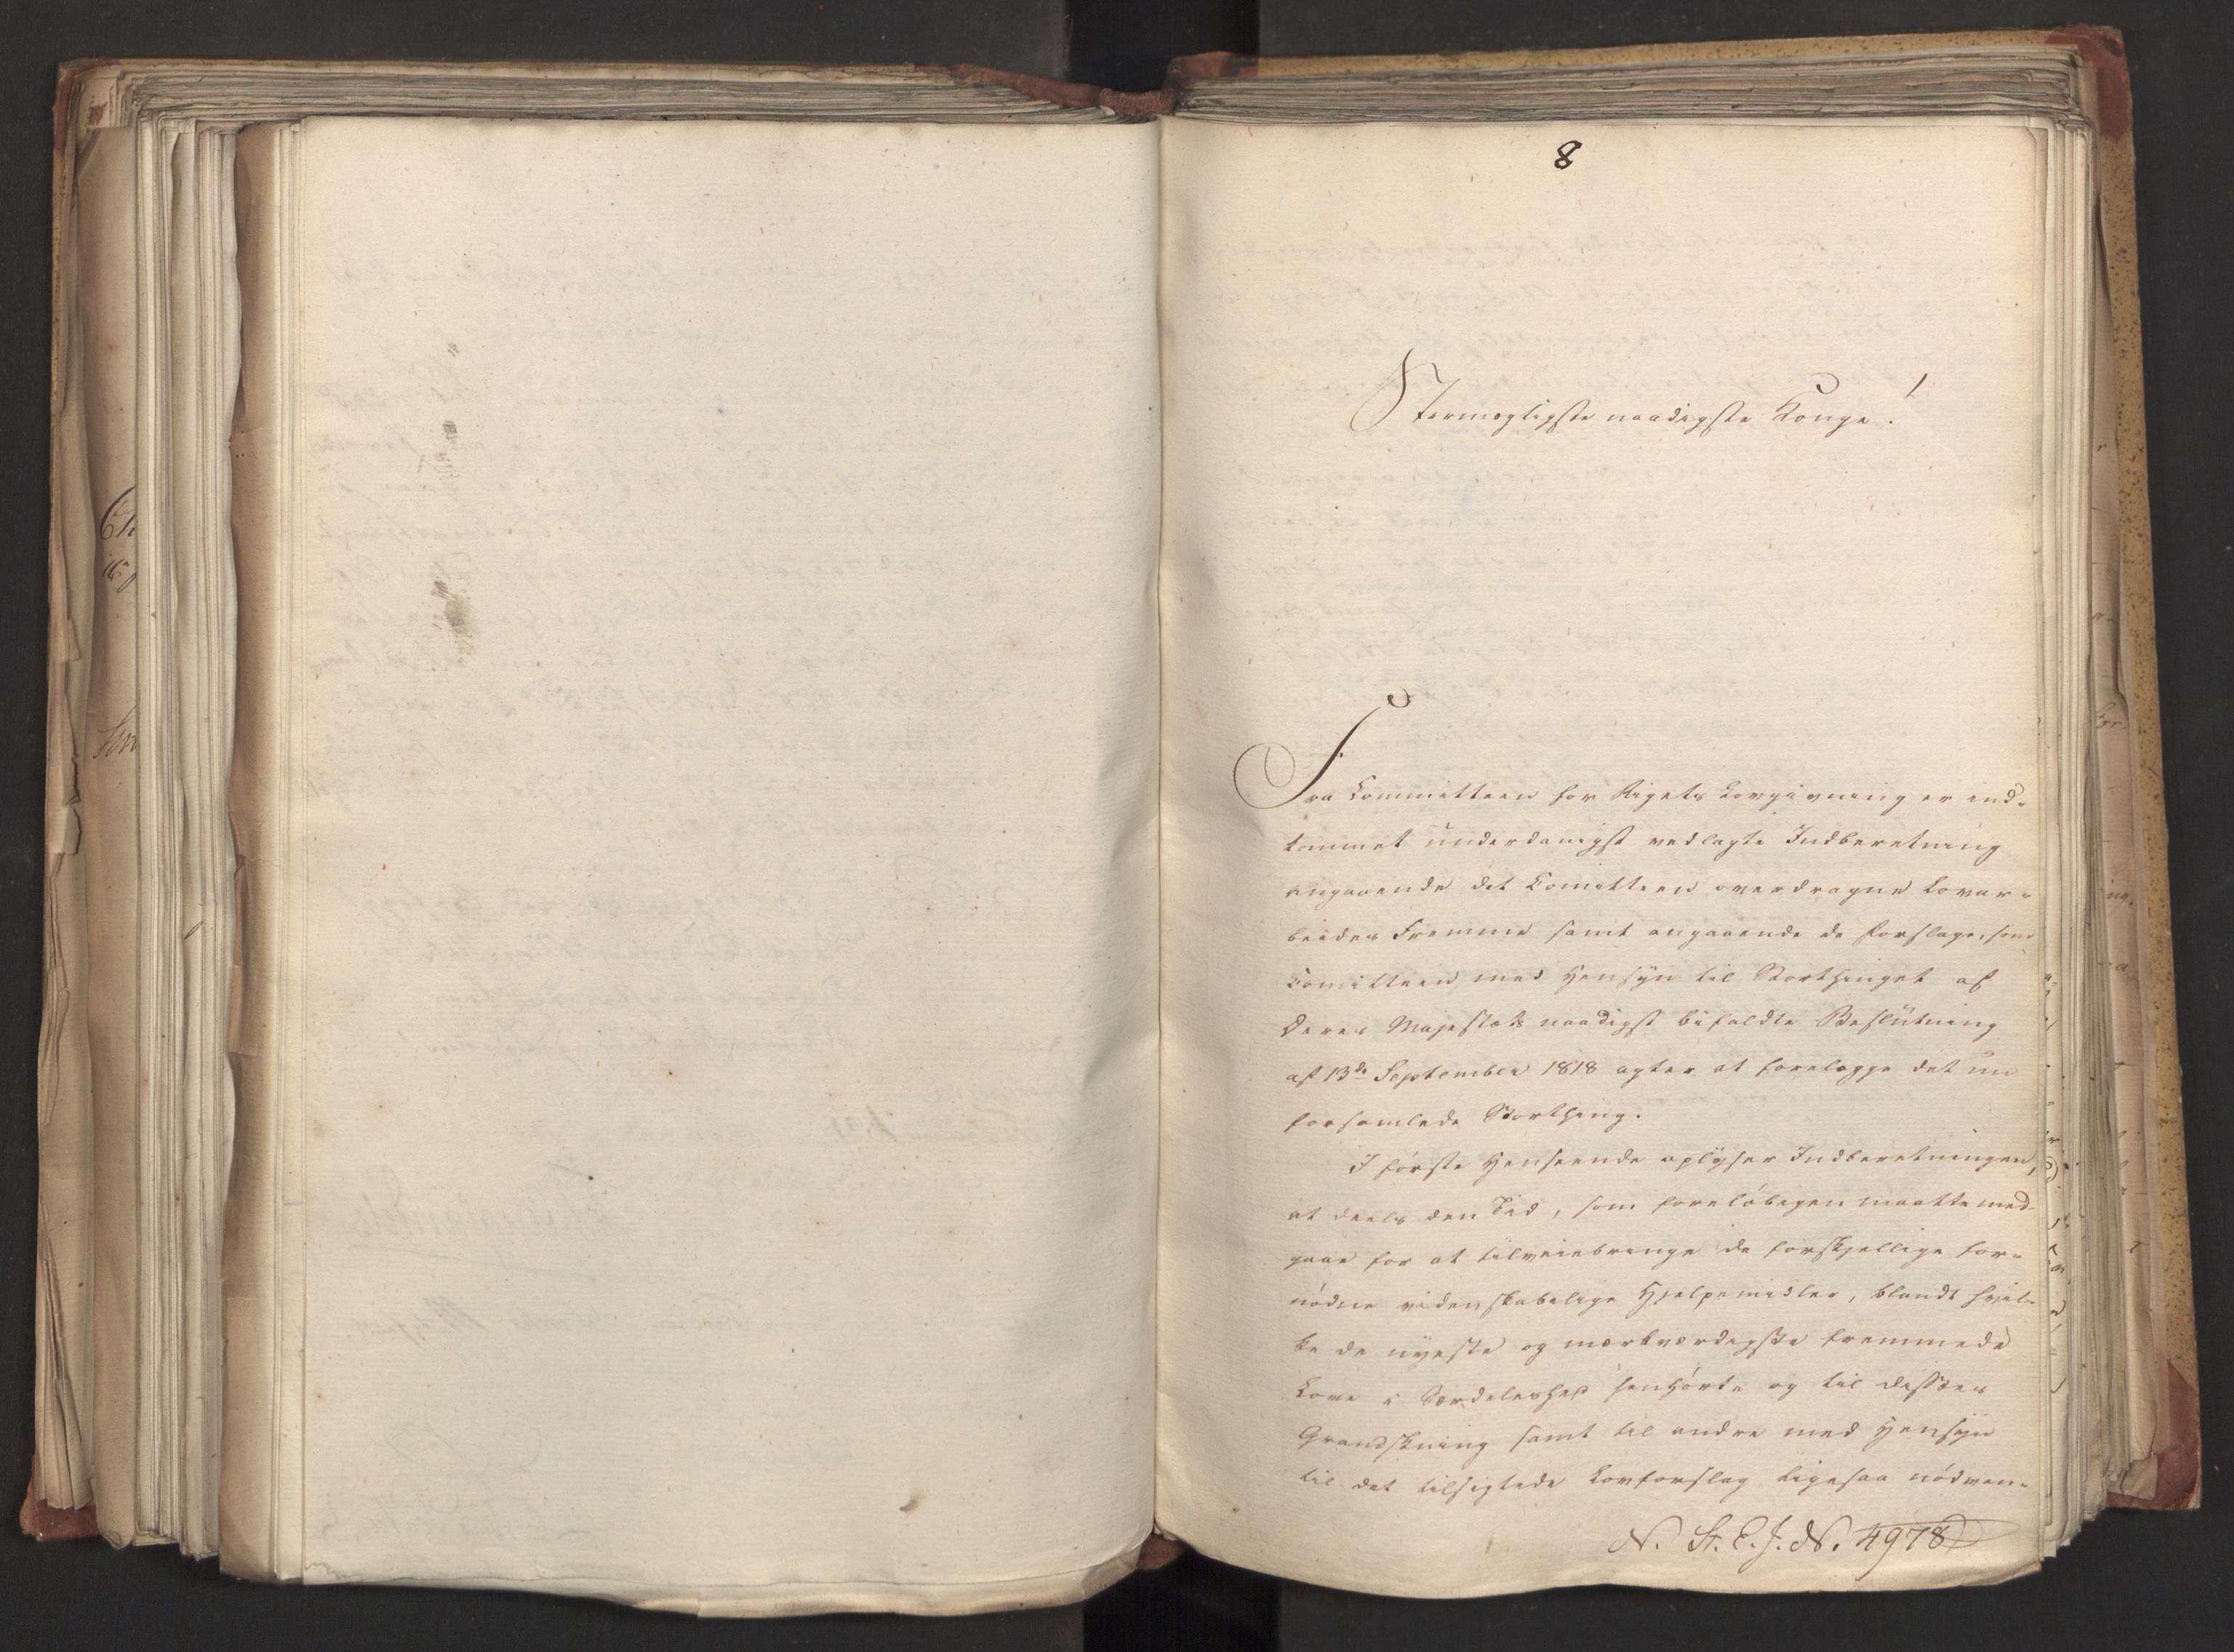 8
Stormægtigste naadigste Konge!
Fra Committeen for Rigets Lovgivning er ind-
kommet underdanigst vedlagte Indberetning
angaaende det Comitteen overdragne Lovar-
beides Fremme samt angaaende de Forslage, som
Comitteen med Hensyn til Storthinget af
Deres Majestæts naadigst bifaldte Beslutning
af 13de September 1818 agter at forelægge det nu
forsamlede Storthing.
I første Henseende oplyser Indberetningen,
at deels den Tid, som foreløbigen maatte med-
gaae for at tilveiebringe de forskjellige for-
nødne videnskabelige Hjelpemidler, blandt hvil-
ke de nyeste og mærkværdigste fremmede
Love i Særdeleshed henhørte og til disses
Grandskning samt til andre med Hensyn
til det tilsigtede Lovforslag ligesaa nødven-
N. St. E. J. N. 4978
Ch